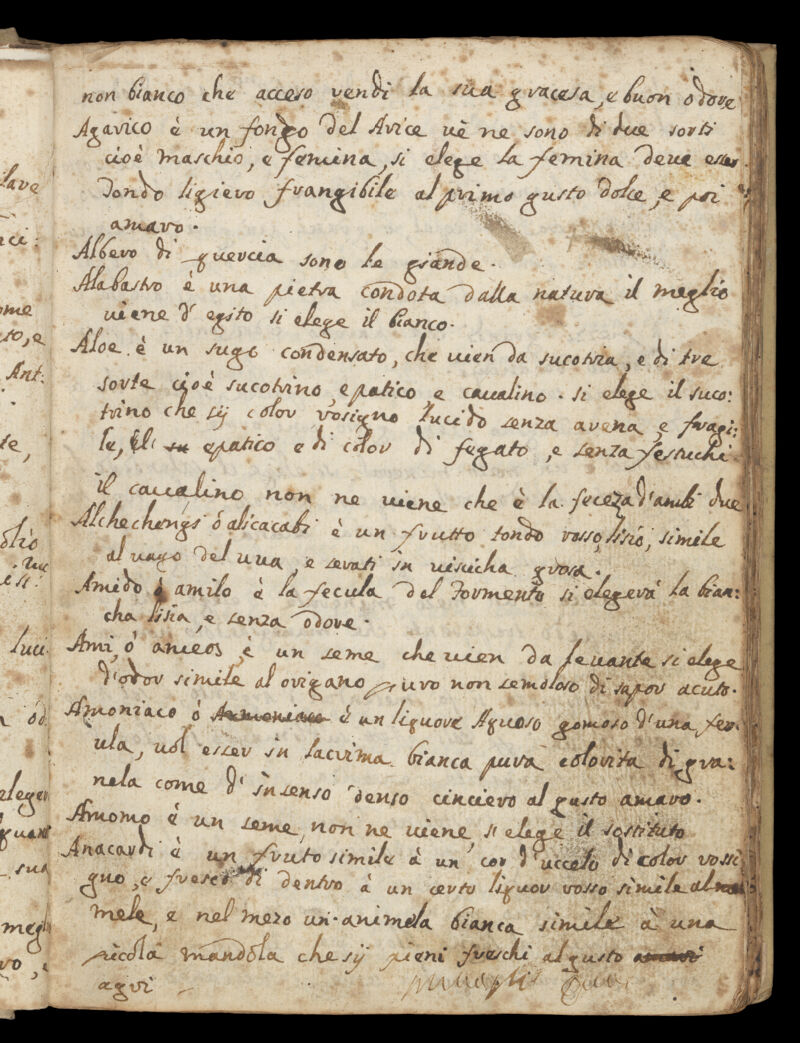 non bianco che acceso vendi la sua gracesa, e buon odore
Agarico è un fongo del Arice uè ne sono di due sorti
cioè maschio, e femina, si elege la femina deve esser
tondo ligiero frangibile al primo gusto dolce, e poi
amaro.
Albero di quercia sono le giande.
Alabastro è una pietra condota dalla natura il meglio
viene d' egito si elege il bianco.
Aloe è un sugo condensato, che uien da sucotria, e di tre
sorte cioè sucotrino, epatico, e cauulino. si elege il suco:
trino che sij color rosigno lucido senza arena, e fragi:
le, il epatico e di color di fegato, e senza festuchi
il caualino non ne uiene che è la feceza d'ambi due
Alchechengi ó alicacabi è un frutto tondo rosso, lisio, simile
al uago del uua, e serati in uisicha grosa.
Amido ó amilo è la fecula del formento si elegerà la bian:
cha lisia, e senza odore.
Ami, ó ameos, è un seme che uien da leuante si elege
d'odor simile al origano puro non semoloso di sapor acuto.
Amoniaco ó Armoniaco è un liquore Aquoso gomoso d'una fer:
ula, uol esser in lacrima bianca pura colorita di gra:
nela come d' insenso denso cinciero al gusto amaro.
Amomo è un seme, non ne viene, si elege il sostituto
Anacardi è un fruto simile à un cor d'uccelo di color rossi
gno, e fresco di dentro à un certo liquor rosso simile al
mele, e nel mezo un animela bianca simile à una
picola mandola che sij pieni freschi al gusto amari
agri